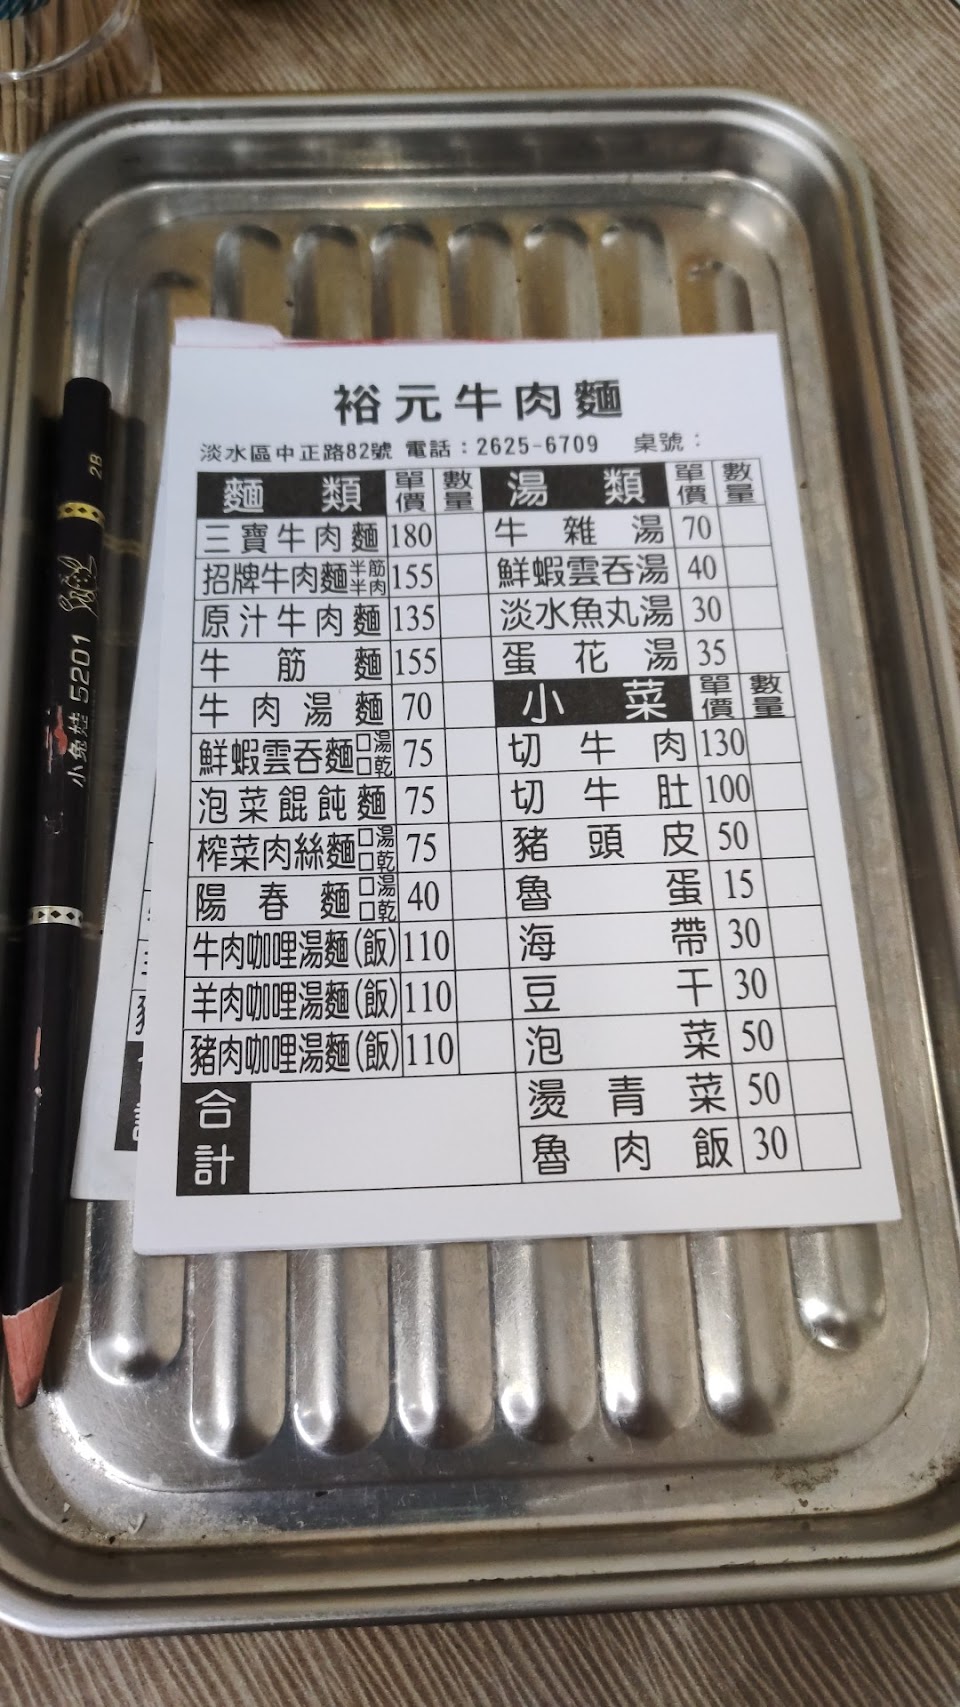 裕元牛肉麵
淡水區中正路82號 電話：2625-6709 桌號：
麵類 單價 數量
三寶牛肉麵 180
招牌牛肉麵 半筋半肉 155
原汁牛肉麵 135
牛筋麵 155
牛肉湯麵 70
鮮蝦雲吞麵 □湯 □乾 75
泡菜餛飩麵 75
榨菜肉絲麵 □湯 □乾 75
陽春麵 □湯 □乾 40
牛肉咖哩湯麵(飯) 110
羊肉咖哩湯麵(飯) 110
豬肉咖哩湯麵(飯) 110
合計
湯類 單價 數量
牛雜湯 70
鮮蝦雲吞湯 40
淡水魚丸湯 30
蛋花湯 35
小菜 單價 數量
切牛肉 130
切牛肚 100
豬頭皮 50
魯蛋 15
海帶 30
豆干 30
泡菜 50
燙青菜 50
魯肉飯 30
小兔娃 5201
2B